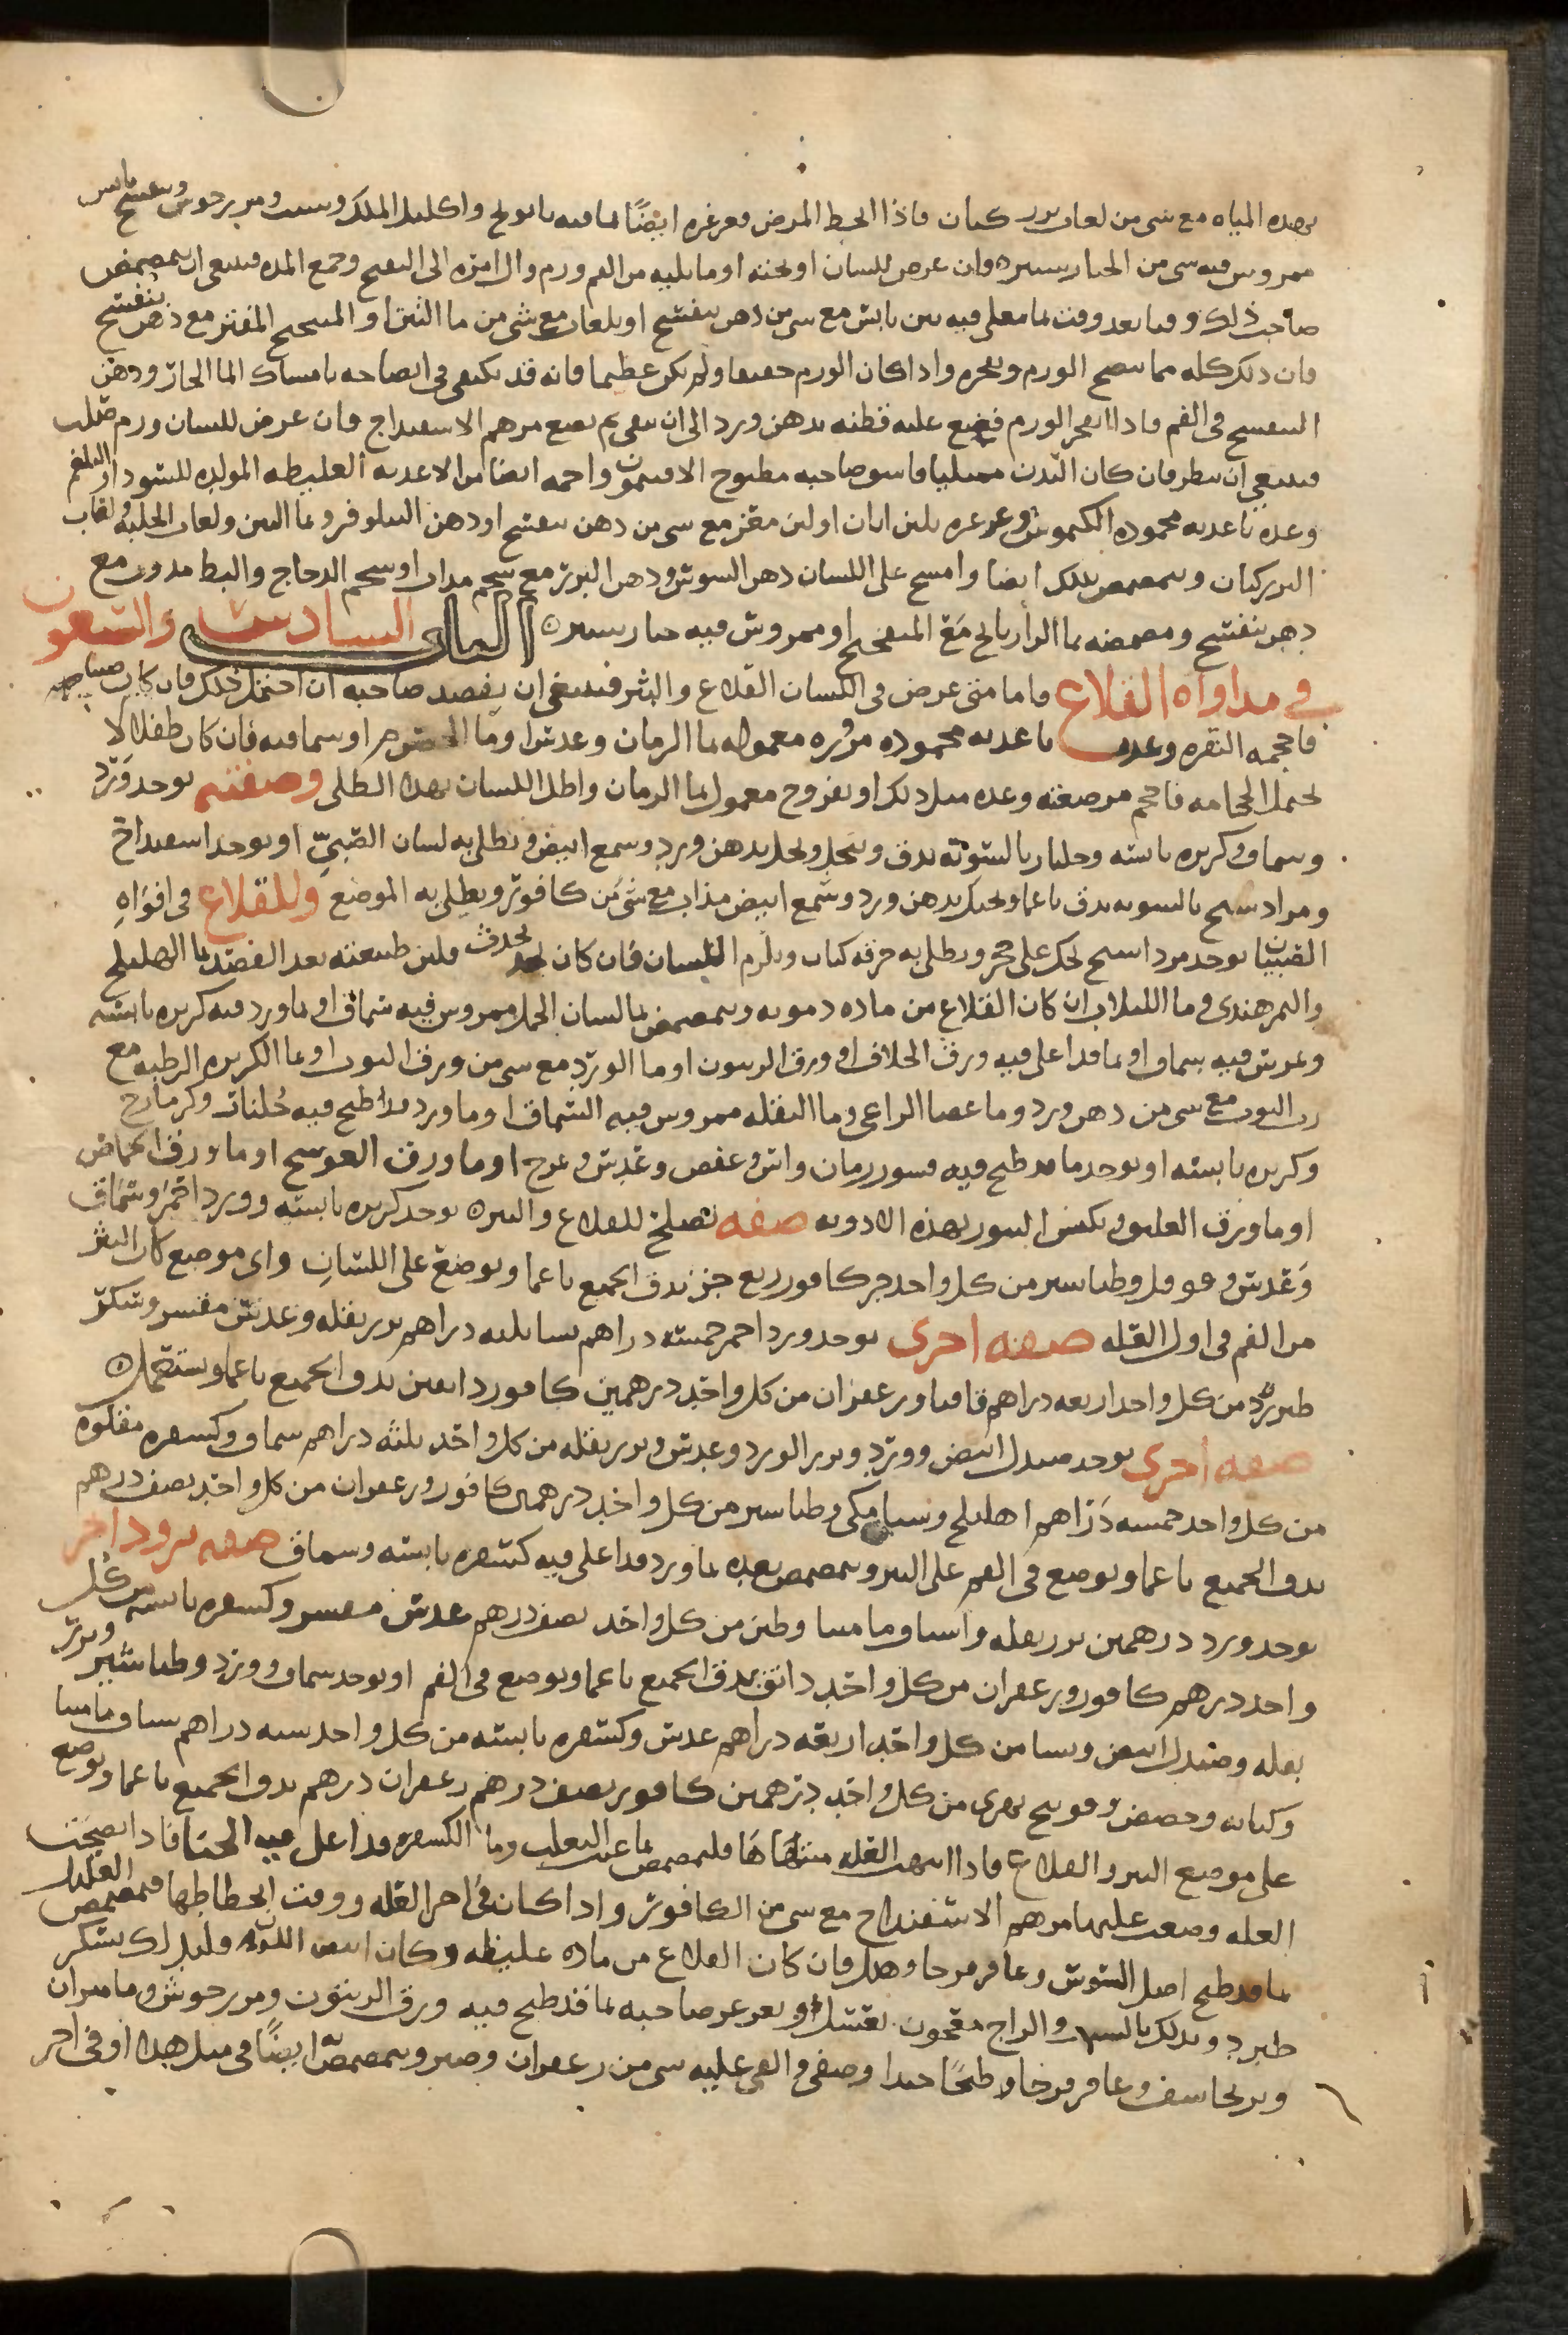 بهذه المياه مع شى من لعاب بزر كتان فاذا انحط المرض فغرغره ايضًا بما فيه بابونج واكليل الملك وشبت ومرزجوش وبنفسج يابس
ممروس فيه شى من الخيارشنبر فان عرض للسان او تحته او ما يليه من الفم ورم وال امره الى التقيح وجمع المده فينبغى ان يتمضمض
صاحب ذلك وقتا بعد وقت بما مغلى فيه تين يابس مع شى من دهن بنفسج او بلعاب مع شى من ما التين او الميبختج المفتر مع دهن بنفسج
فان ذلك كله مما ينضج الورم ويفجره واذا كان الورم ضعيفا ولم يكن عظيما فانه قد يكتفى فى انضاجه بامساك الما الحار ودهن
البنفسج فى الفم فاذا انفجر الورم فضع عليه قطنه بدهن ورد الى ان ينقى ثم يضع مرهم الاسفيداج فان عرض للسان ورم صلب
فينبغى ان ينظر فان كان البدن ممتليا فاسق صاحبه مطبوخ الافتيمون واحمه ايضا من الاغديه الغليظه المولده للسودا والبلغم
وغده باغديه محموده الكيموس وغرغره بلبن اتان او لبن مفتر مع شى من دهن بنفسج او دهن النيلوفر وما التين ولعاب الحلبه ولعاب
البزركتان ويتمضمض بذلك ايضا وامسح على اللسان دهن السوسن ودهن البزر مع شحم مداب او شحم الدجاج والبط مدوب مع
دهن بنفسج ومضمضه بما الرازيانج مع الميبختج او ممروس فيه خيارشنبر الباب السادس والتسعون
فى مداواه القلاع فاما متى عرض فى اللسان القلاع والبثر فينبغى ان يفصد صاحبه ان احتمل ذلك فان كان صبيا
فاحجمه النقره وغده باغديه محموده مزوره معموله بما الرمان وعدس او ما الحصرم او سماقيه فان كان طفلا لا
يحتمل الحجامه فاحجم مرضعته وغده مثل ذلك او بفروج معمول بما الرمان واطل اللسان بهذا الطلى وصفته يوخذ ورد
وسماق وكزبره يابسه وجلنار بالسويه يدق وينخل ويحل بدهن ورد وشمع ابيض ويطلى به لسان الصبيّ او يوخذ اسفيداج
ومرداسنج بالسويه يدق ناعما ويحل بدهن ورد وشمع ابيض مذاب مع شى من كافور ويطلى به الموضع وللقلاع فى افواهِ
الصبيان يوخذ مرداسنج يحك على حجر ويطلى به خرقه كتان ويلزم اللسان فان كان يحدث فلين طبيعته بعد الفصد بما الاهليلج
والتمرهندى وما اللبلاب ان كان القلاع من ماده دمويه ويتمضمض بما لسان الحمل ممروس فيه سماق او بماورد فيه كزبره يابسه
ومرس فيه سماق او بما قد اغلى فيه ورق الخلاف او ورق الزيتون او ما الورد مع شى من ورق التوت او بما الكزبره الرطبه مع
رب التوت مع شى من دهن ورد وما عصا الراعى وما البقله ممروس فيه السماق او ماورد قد اطبخ فيه جُلنار وكزمازج
وكزبره يابسه او يوخذ ما قد طبخ فيه قشور رمان واس وعفص وعدس او ما ورق العوسج او ما ورق الحماض
او ما ورق العليق ويكبس البثور بهذه الادويه صفه تصلح للقلاع والبثره يوخذ كزبره يابسه وورد احمر وسماق
وعدس وفوفل وطباشير من كل واحد جز كافور ربع جز يدق الجميع ناعما ويوضع على اللسان واى موضع كان البثر
من الفم فى اول العله صفه اخرى يوخذ ورد احمر خمسه دراهم نشا ثلثه دراهم بزر بقله وعدس مقشر وسكر
طبرزد من كل واحد اربعه دراهم قاقيا وزعفران من كل واحد درهمين كافور دانقين يدق الجميع ناعما ويستعمل
صفه اخرى يوخذ صندل ابيض وورد وبزر الورد وعدس وبزر بقله من كل واحد ثلثه دراهم سماق وكسفره مقلوه
من كل واحد خمسه دراهم اهليلج وسنا مكى وطباشير من كل واحد درهمان كافور وزعفران من كل واحد نصف درهم
يدق الجميع ناعما ويوضع فى الفم على البثر ويتمضمض بعده بماورد قد اغلى فيه كسفره يابسه وسماق صفه برود اخر
يوخذ ورد درهمين بزر بقله واشياف ماميثا وطين من كل واحد نصف درهم عدس مقشر وكسفره يابسه من كل
واحد درهم كافور وزعفران من كل واحد دانق يدق الجميع ناعما ويوضع فى الفم او يوخذ سماق وورد وطباشير وبزر
بقله وصندل ابيض ونشا من كل واحد اربعه دراهم عدس وكسفره يابسه من كل واحد سته دراهم شياف ماميثا
وكبابه وحضض وفوتنج نهرى من كل واحد درهمين كافور نصف درهم زعفران درهم يدق الجميع ناعما ويوضع
على موضع البثر والقلاع فاذا انتهت العله منتهاها فليتمضمض بما عنب الثعلب وما الكسفره قد اغلى فيه الحنا فاذا نضجت
العله وضعت عليها مرهم الاسفيداج مع شى من الكافور واذا كان فى اخر العله ووقت انحطاطها فيتمضمض العليل
بما قد طبخ اصل السوس وعاقرقرحا وهال فان كان القلاع من ماده غليظه وكان ابيض اللون فليدلك بسكر
طبرزد ويدلك بالشب والزاج معجون بعسل او يغرغر صاحبه بما قد طبخ فيه ورق الزيتون ومرزجوش وماميران
وبرنجاسف وعاقرقرحا طبخًا جيدا وصفى والقى عليه شى من زعفران وصبر ويتمضمض ايضًا فى مثل هذا او فى اخر